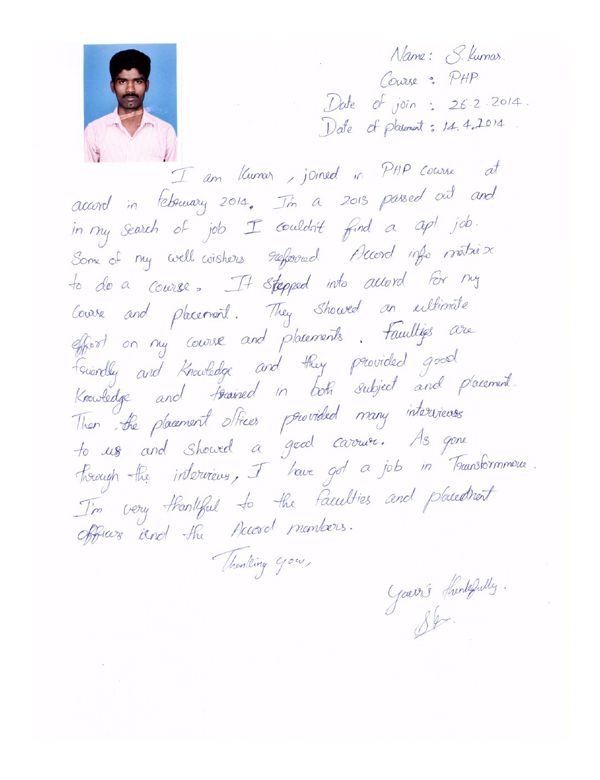 Name: S. Kumar.
Course : PHP
Date of join : 26.2.2014.
Date of placement : 14.4.2014.
I am Kumar, joined in PHP course at
accord in February 2014. I'm a 2013 passed out and
in my search of job I couldn't find a apt job.
Some of my well wishers referred Accord info matrix
to do a course. It stepped into accord for my
course and placement. They showed an ultimate
effort on my course and placements. Faculties are
friendly and knowledge and they provided good
knowledge and trained in both subject and placement.
Then, the placement officer provided many interviews
to us and showed a good carrier. As gone
through the interviews, I have got a job in
I'm very thankful to the faculties and placement
officers and the Accord members.
Thanking you,
Your's thankfully.